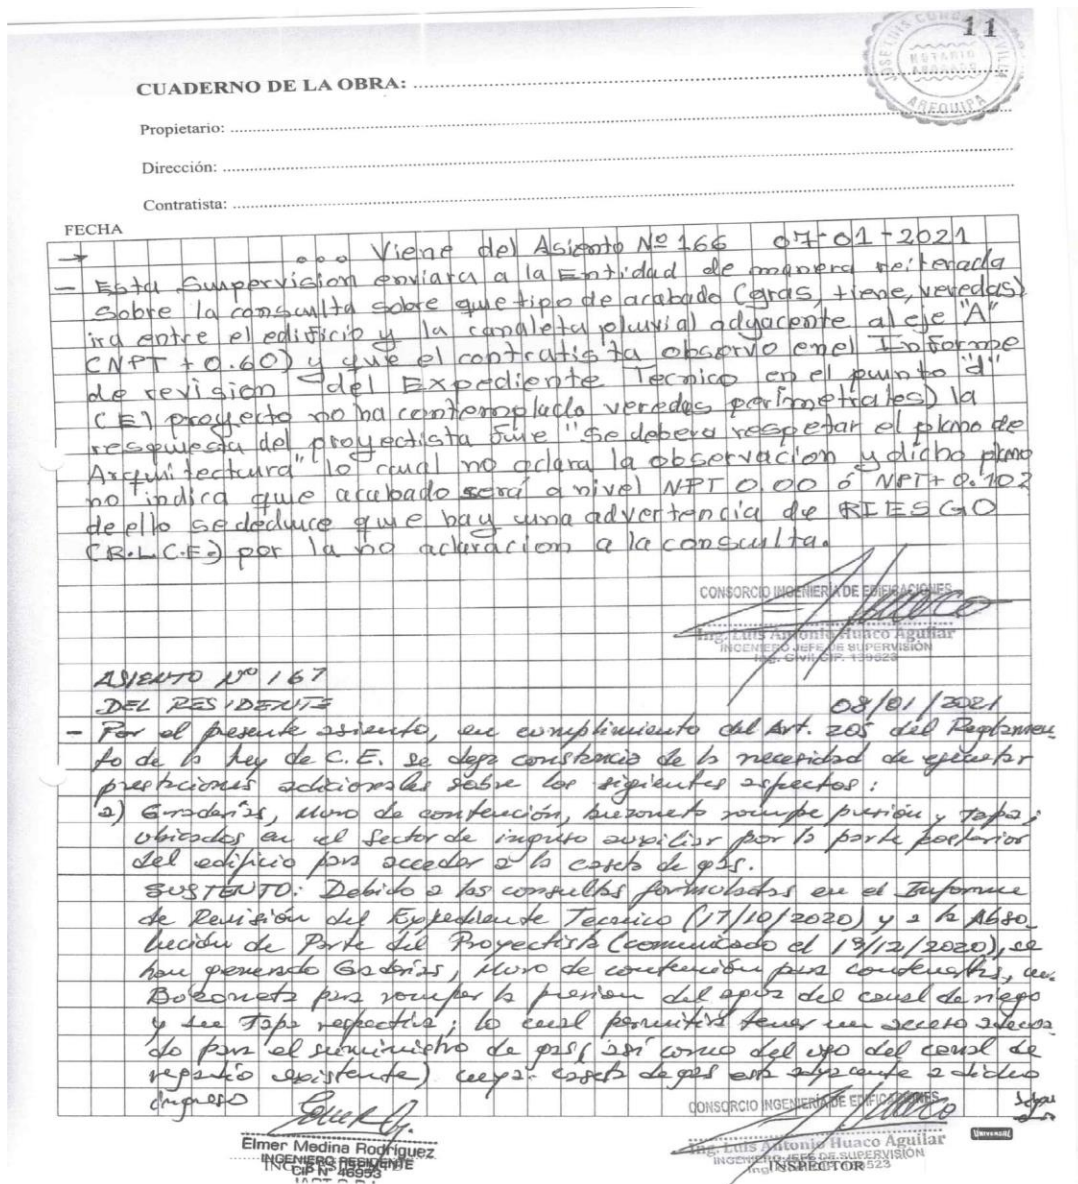 11
JOSE LUIS
NOTARIO
ABOGADO
AREQUIPA
CUADERNO DE LA OBRA:
Propietario:
Dirección:
Contratista:
FECHA
→ ... Viene del Asiento Nº 166 07-01-2021
- Esta Supervision enviara a la Entidad de manera reiterada
Sobre la consulta sobre que tipo de acabado (gras, tiene, veredas)
ira entre el edificio y la canaleta pluvial adyacente al eje "A"
(NPT + 0.60) y que el contratista observo en el Informe
de revision del Expediente Tecnico en el punto "d"
(El proyecto no ha contemplado veredas perimetrales) la
respuesta del proyectista fue "Se debera respetar el plano de
Arquitectura" lo cual no aclara la observacion y dicho plano
no indica que acabado será a nivel NPT 0.00 ó NPT+ 0.102
de ello se deduce que hay una advertencia de RIESGO
(R.L.C.E.) por la no aclaracion a la consulta.
CONSORCIO INGENIERÍA DE EDIFICACIONES
Ing. Luis Antonio Huaco Aguilar
INGENIERO JEFE DE SUPERVISIÓN
Ing. Civil CIP. 139523
ASIENTO Nº 167
DEL RESIDENTE 08/01/2021
- Por el presente asiento, en cumplimiento del Art. 205 del Reglamen
to de la Ley de C.E. se deja constancia de la necesidad de ejecutar
prestaciones adicionales sobre los sigientes aspectos:
a) Graderías, Muro de contención, buzoneta rompe presión y Tapa;
ubicados en el Sector de ingreso auxiliar por la parte posterior
del edificio para acceder a la caseta de gas.
SUSTENTO: Debido a las consultas formuladas en el Informe
de Revisión del Expediente Tecnico (17/10/2020) y a la Abso
lución de Parte del Proyectista (comunicado el 19/12/2020), se
han generado Graderías, Muro de contención para contenerlas, un.
Buzoneta para romper la presion del agua del canal de riego
y su Tapa respectiva; lo cual permitira tener un acceso adecua
do para el suministro de gas (así como del uso del canal de
regadío existente) cuya caseta de gas está adyacente a dicho
ingreso
CONSORCIO INGENIERÍA DE EDIFICACIONES
Elmer Medina Rodríguez
INGENIERO RESIDENTE
CIP Nº 46953
Ing. Luis Antonio Huaco Aguilar
INGENIERO JEFE DE SUPERVISIÓN
INSPECTOR
Universal